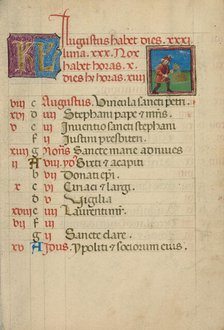 KL Augustus habet dies. xxxi.
luna. xxx. Nox
habet horas. x.
Dies hʒ horas. xiiii
viii c Augustus. Vincula sancti petri.
xvi d Stephani pape et mris
v e Inventio sancti stephani
f Justini presbiteri
xiii g Nonis Sancte marie ad nives
ii A viii yo Sixti et
b Donati epi
x c Ciriaci et largi.
d Vigilia
xviii e Laurentii mr.
vii f
g Sancte Clare.
xv A Idus. ypoliti et sociorum eius.